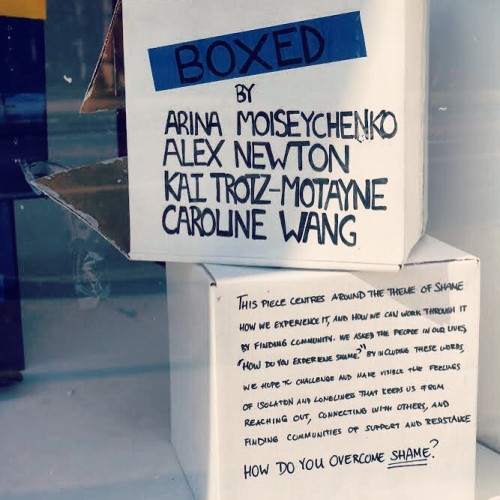 BOXED
BY
ARINA MOISEYCHENKO
ALEX NEWTON
KAI TROTZ-MOTAYNE
CAROLINE WANG
THIS PIECE CENTRES AROUND THE THEME OF SHAME
HOW WE EXPERIENCE IT, AND HOW WE CAN WORK THROUGH IT
BY FINDING COMMUNITY. WE ASKED THE PEOPLE IN OUR LIVES,
"HOW DO YOU EXPERIENE SHAME?" BY INCLUDING THESE WORDS,
WE HOPE TO CHALLENGE AND MAKE VISIBLE THE FEELINGS
OF ISOLATON AND LONELINES THAT KEEPS US FROM
REACHING OUT, CONNECTING WITH OTHERS, AND
FINDING COMMUNITIES OF SUPPORT AND RESISTANCE
HOW DO YOU OVERCOME SHAME?